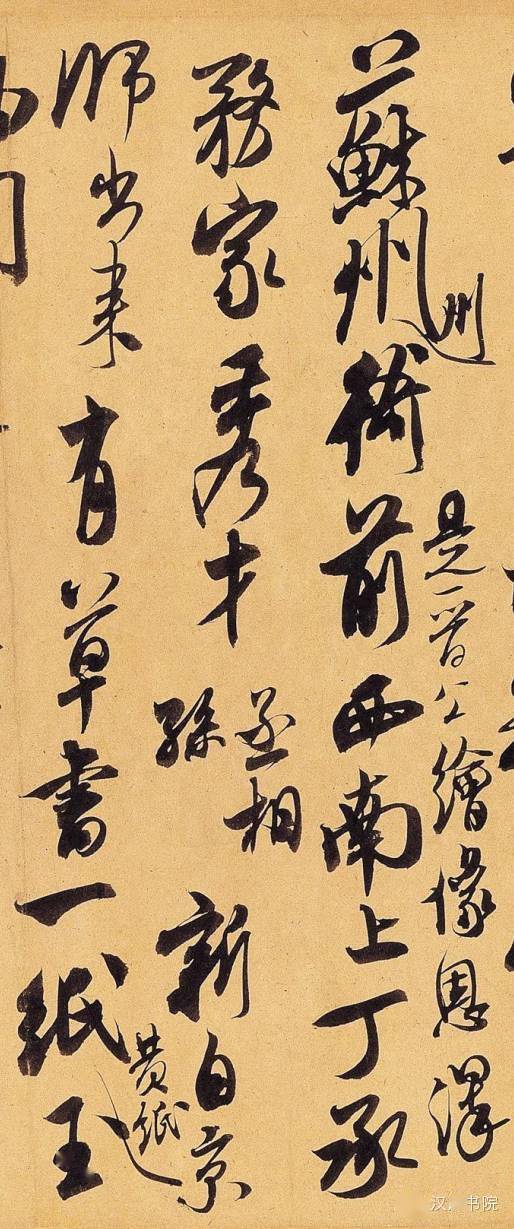 州
是晉公繪像恩澤
蘇州衙前西南上丁承
務家秀才丞相孫新自京
黄紙
師出来有草書一紙玉
汉，书院